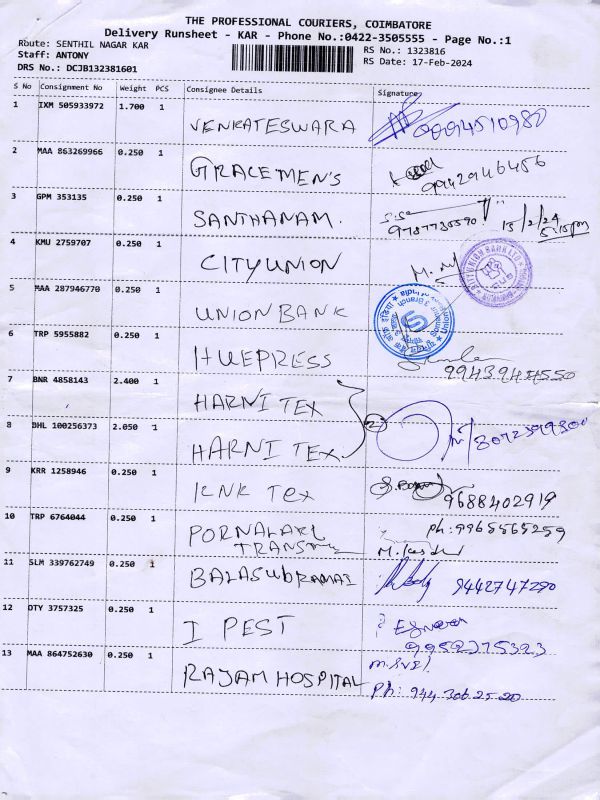 THE PROFESSIONAL COURIERS, COIMBATORE
Delivery Runsheet - KAR - Phone No.:0422-3505555 - Page No.:1
Route: SENTHIL NAGAR KAR
RS No.: 1323816
Staff: ANTONY
RS Date: 17-Feb-2024
DRS No.: DCJB132381601
S No Consignment No Weight PCS Consignee Details Signature
1 IXM 505933972 1.700 1 VENKATESWARA
2 MAA 863269966 0.250 1 GRACEMEN'S 9942946456
3 GPM 353135 0.250 1 SANTHANAM. 9787735590 15/2/24
5.15pm
4 KMU 2759707 0.250 1 CITYUNION
5 MAA 287946770 0.250 1 UNION BANK
6 TRP 5955882 0.250 1 HUEPRESS 9943944550
7 BNR 4858143 2.400 1 HARNI TEX
8 BHL 100256373 2.050 1 HARNI TEX 2
9 KRR 1258946 0.250 1 KNK Tex 9688402919
10 TRP 6764044 0.250 1 Ph: 9965565259
11 SLM 339762749 0.250 1 9442747290
12 OTY 3757325 0.250 1 I PEST
9952375323
13 MAA 864752630 0.250 1 RAJAM HOSPITAL
Ph: 944 306 25 20